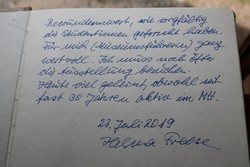 Bemerkenswert, wie sorgfältig
die Student:innen geforscht haben.
Für mich (Museumsführerin) ganz
wertvoll. Ich muss noch öfter
die Ausstellung besuchen.
Heute viel gelernt, obwohl seit
fast 30 Jahren aktiv im MH.
23. Juli 2019
Helma Freese